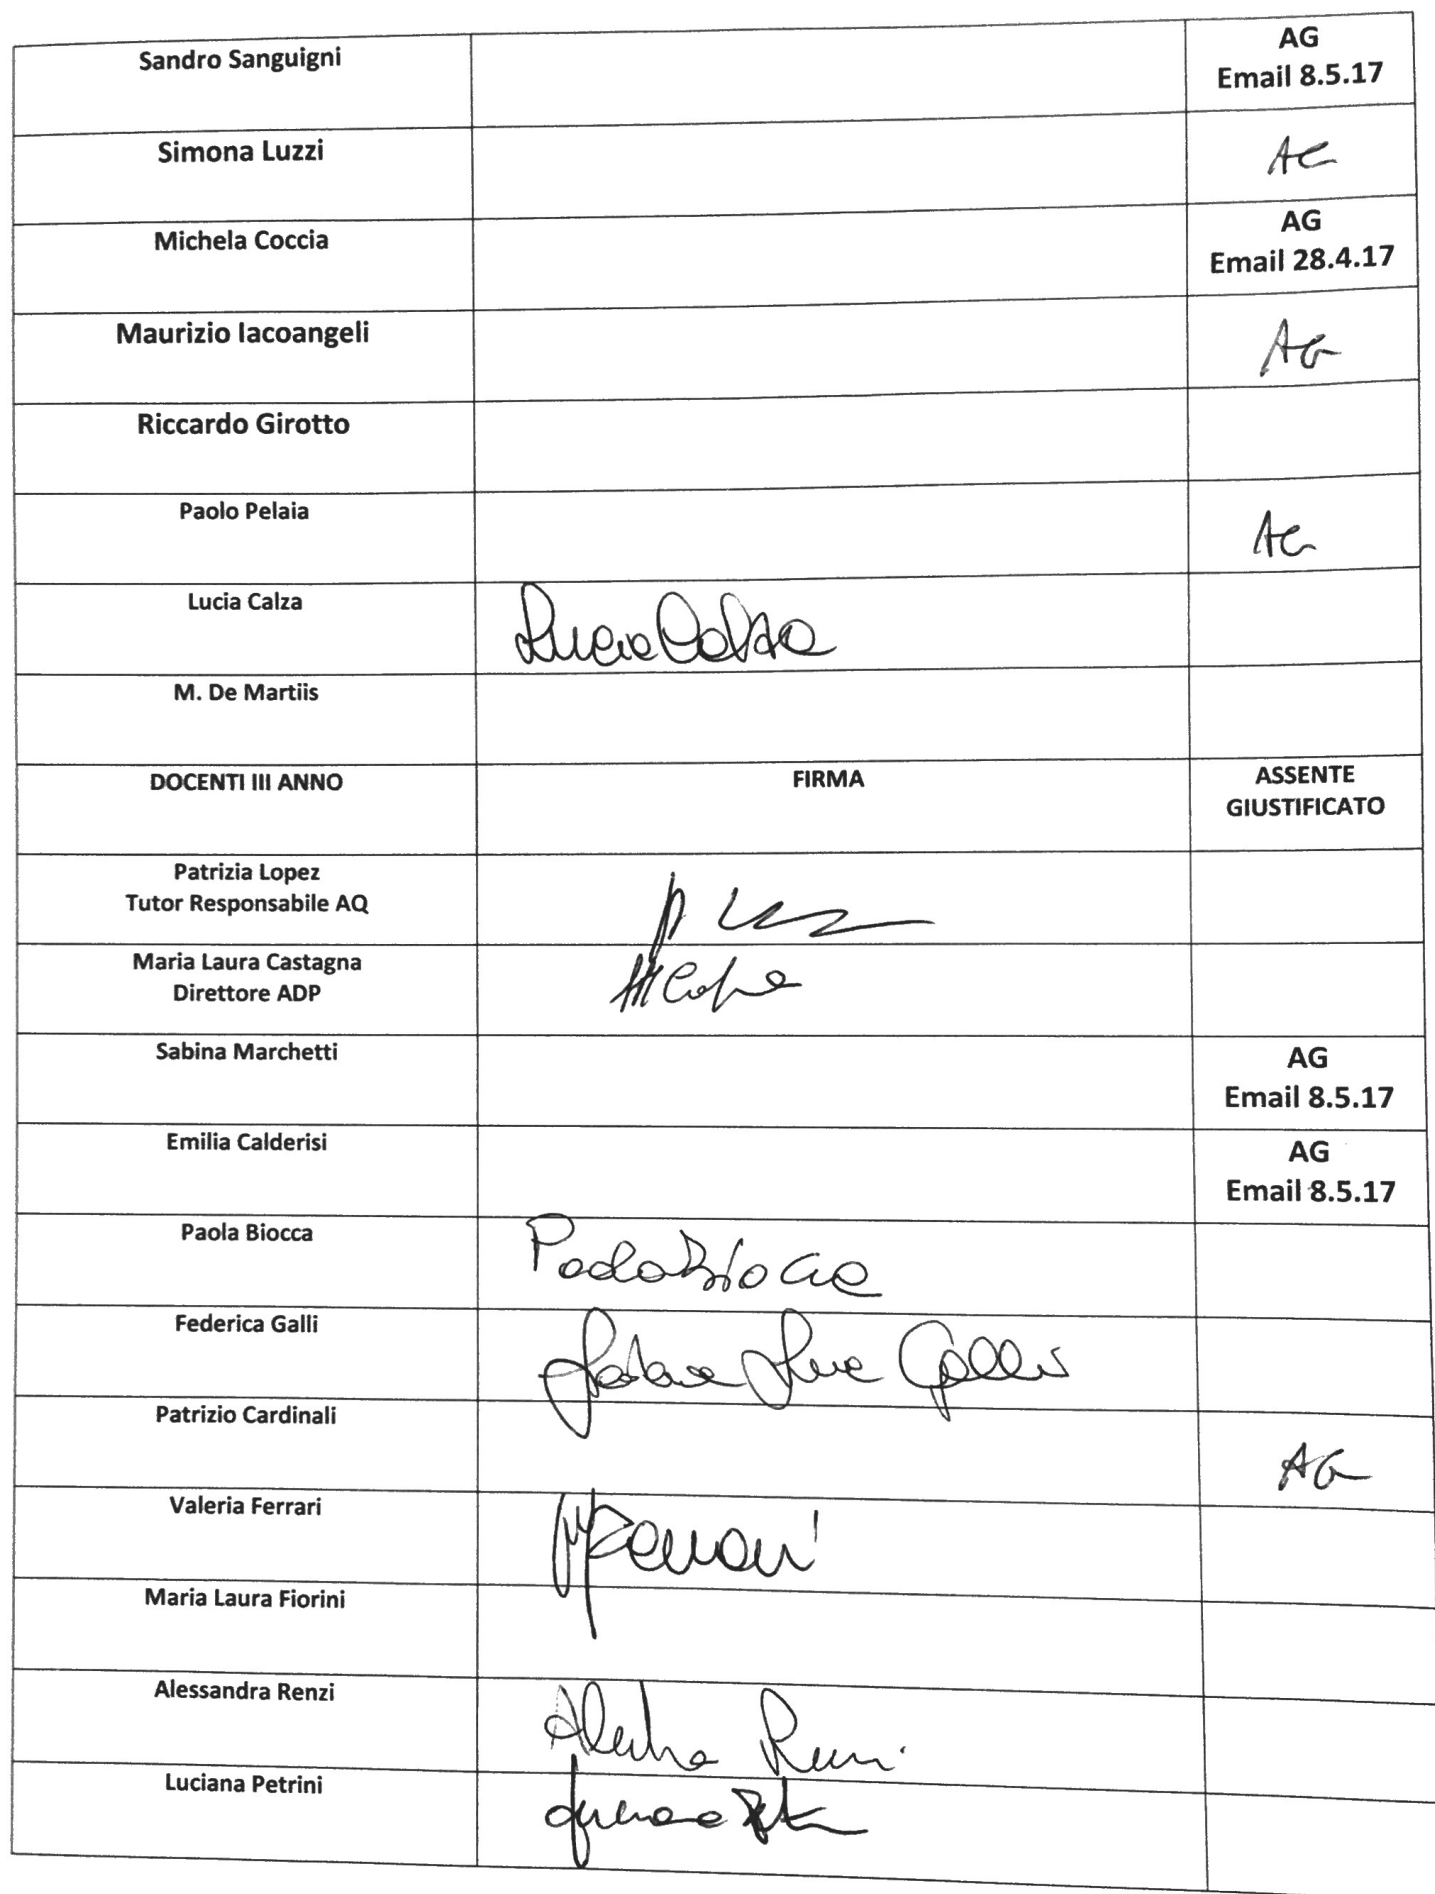 Sandro Sanguigni
AG
Email 8.5.17
Simona Luzzi
AG
Michela Coccia
AG
Email 28.4.17
Maurizio Iacoangeli
AG
Riccardo Girotto
Paolo Pelaia
AG
Lucia Calza
Lucia Calza
M. De Martiis
DOCENTI III ANNO
FIRMA
ASSENTE
GIUSTIFICATO
Patrizia Lopez
Tutor Responsabile AQ
Maria Laura Castagna
Direttore ADP
Sabina Marchetti
AG
Email 8.5.17
Emilia Calderisi
AG
Email 8.5.17
Paola Biocca
Paola Biocca
Federica Galli
Galli
Patrizio Cardinali
AG
Valeria Ferrari
Ferrari
Maria Laura Fiorini
Alessandra Renzi
Renzi
Luciana Petrini
Luciana